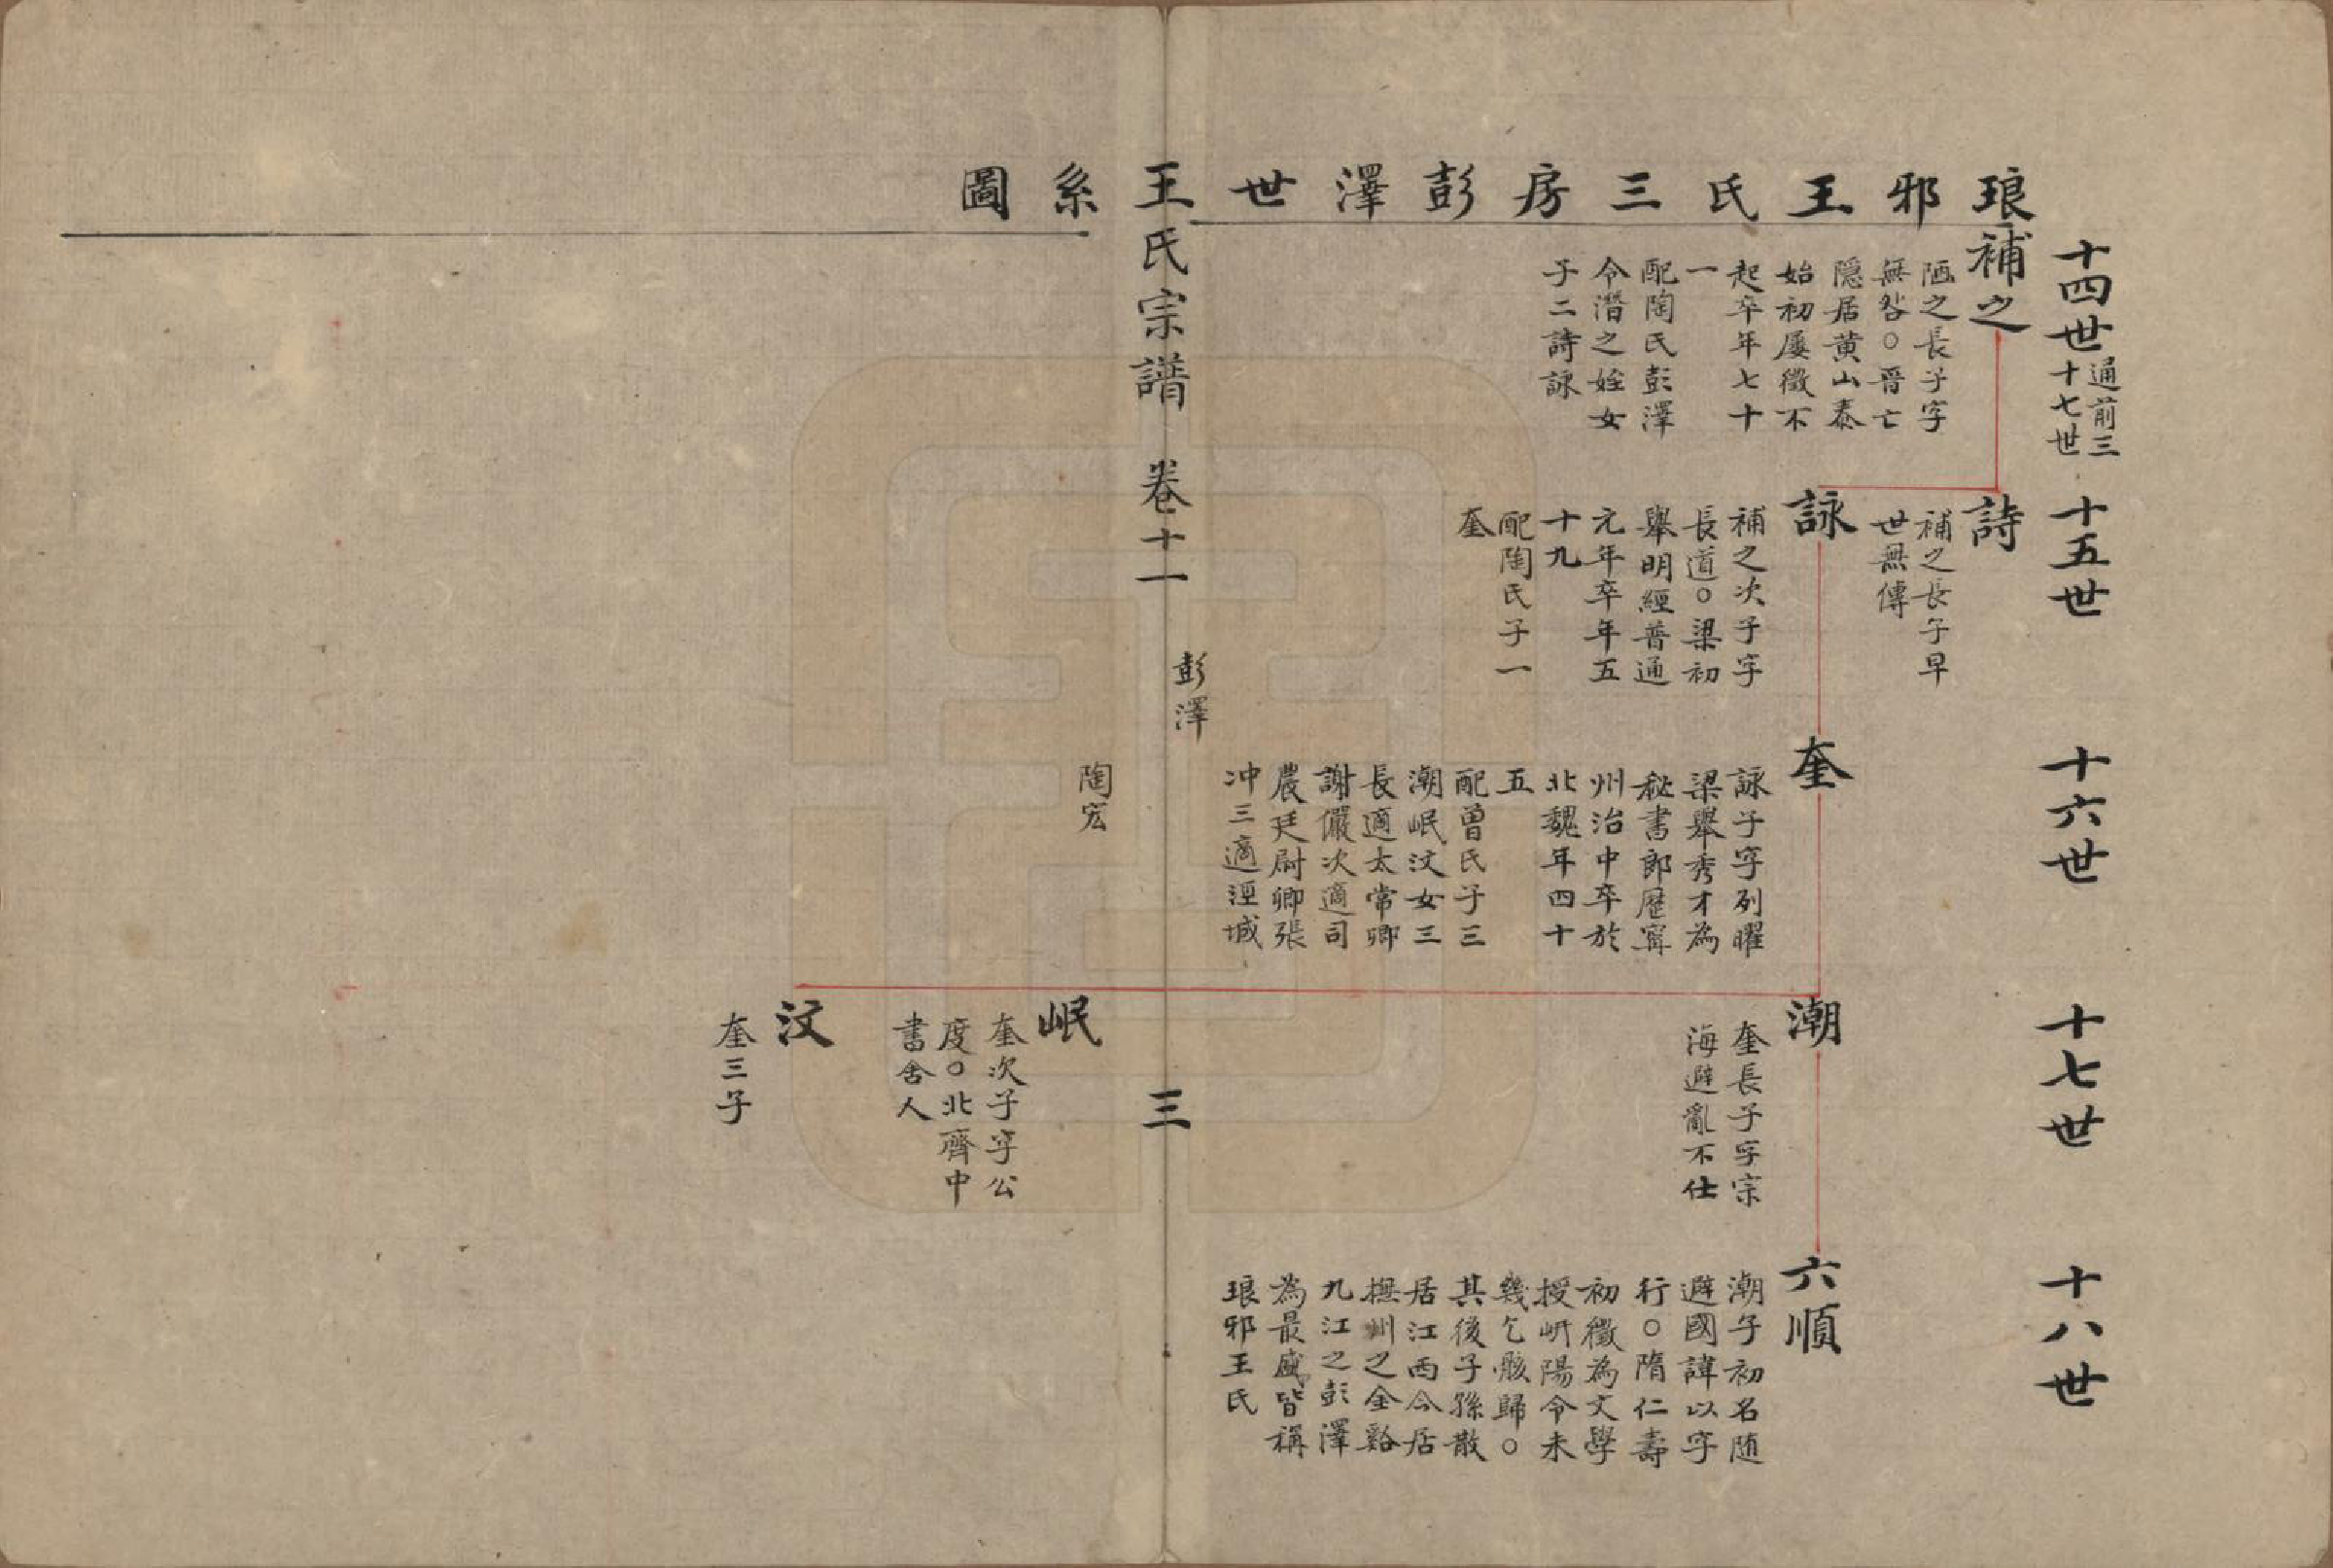 琅邪王氏三房彭澤世系圖
十四世
通前三
十七世
補之
陋之長子字
無咎○晋亡
隱居黄山泰
始初屢徵不
起卒年七十
一
配陶氏彭澤
令潛之姪女
子二詩詠
十五世
詩
補之長子早
世無傳
詠
補之次子字
長道○梁初
舉明經普通
元年卒年五
十九
配陶氏子一
奎
十六世
奎
詠子字列曜
梁舉秀才為
秘書郎歷寧
州治中卒於
北魏年四十
五
配曾氏子三
潮岷汶女三
長適太常卿
謝儼次適司
農廷尉卿張
冲三適涇城
陶宏
十七世
潮
奎長子字宗
海避亂不仕
岷
奎次子字公
度○北齊中
書舍人
汶
奎三子
十八世
六順
潮子初名随
避國諱以字
行○隋仁壽
初徵為文學
授岍陽令未
幾乞骸歸○
其後子孫散
居江西今居
撫州之金谿
九江之彭澤
為最盛皆稱
琅邪王氏
王氏宗譜 卷十一 彭澤 三